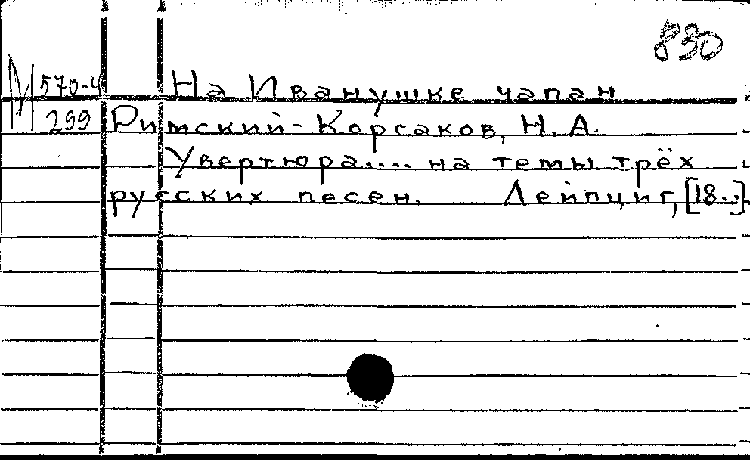 830
М 570-4 На Иванушке чапан
299 Римский-Корсаков, Н. А.
Увертюра.... на темы трёх
русских песен. Лейпциг, [18..]